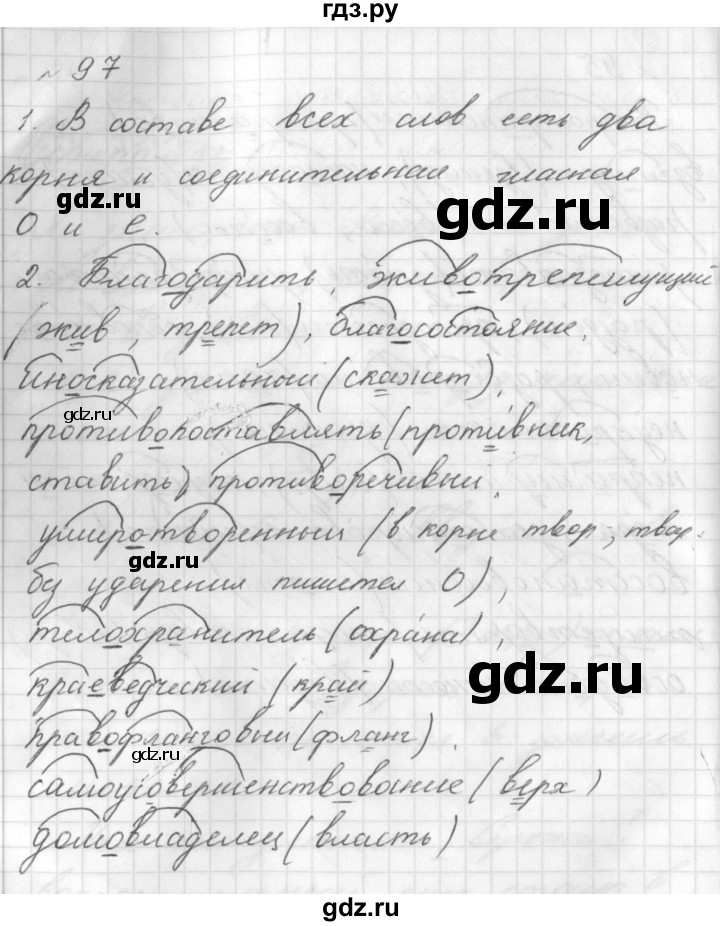 гдз.ру
№ 97
1. В составе всех слов есть два
корня и соединительная гласная
О и е.
gdz.ru
gdz.ru
2. Благодарить, животрепещущий
(жив, трепет), благосостояние,
Иносказательный (скажет),
gdz.ru
противопоставлять (противник,
ставить), противоречивый,
умиротворенный (в корне твор-, твар-
gdz.ru
б/у ударения пишется О),
телохранитель (охрана),
gdz.ru
краеведческий (край)
правофланговый (фланг)
gdz.ru
самоусовершенствование (верх)
домовладелец (власть)
gdz.ru